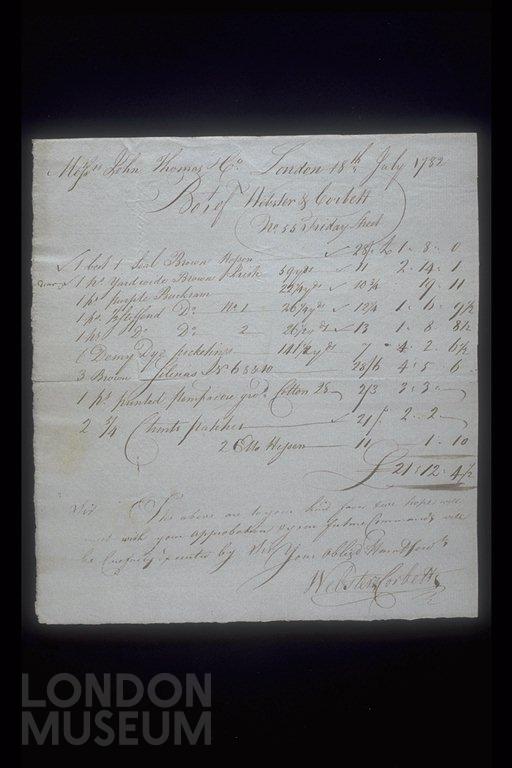 Messrs John Thomas & Co. London 18th July 1782
Bo of Webster & Corbett
No 55 Friday Street
1 best & Seal Brown Hessen 28/ £ 1 " 8 " 0
1 ps Yard wide Brown Irish 59 yds 11 2 " 14 " 1
1 ps purple Buckram 22 1/4 yds 10 3/4 19 " 11
1 ps Do No 1 26 yds 12 1/4 1 " 6 " 9 1/2
1 ps Do Do 2 26 yds 13 1 " 8 " 8 1/2
6 Demy Dyd pocketings 141 yds 7 4 " 2 " 6 1/2
3 Brown 28/6 4 " 5 " 6
1 ps printed Cotton 28 2/3 3 " 3 "
2 3/4 Chints patches 21/ 2 " 2 "
2 Ells Hessen 11 1 " 10
£ 21 " 12 " 4 1/2
Sir The above are to your kind favor hope will
meet with your approbation your future Commands will
be by Sir Your Obliged
Webster & Corbett
LONDON
MUSEUM